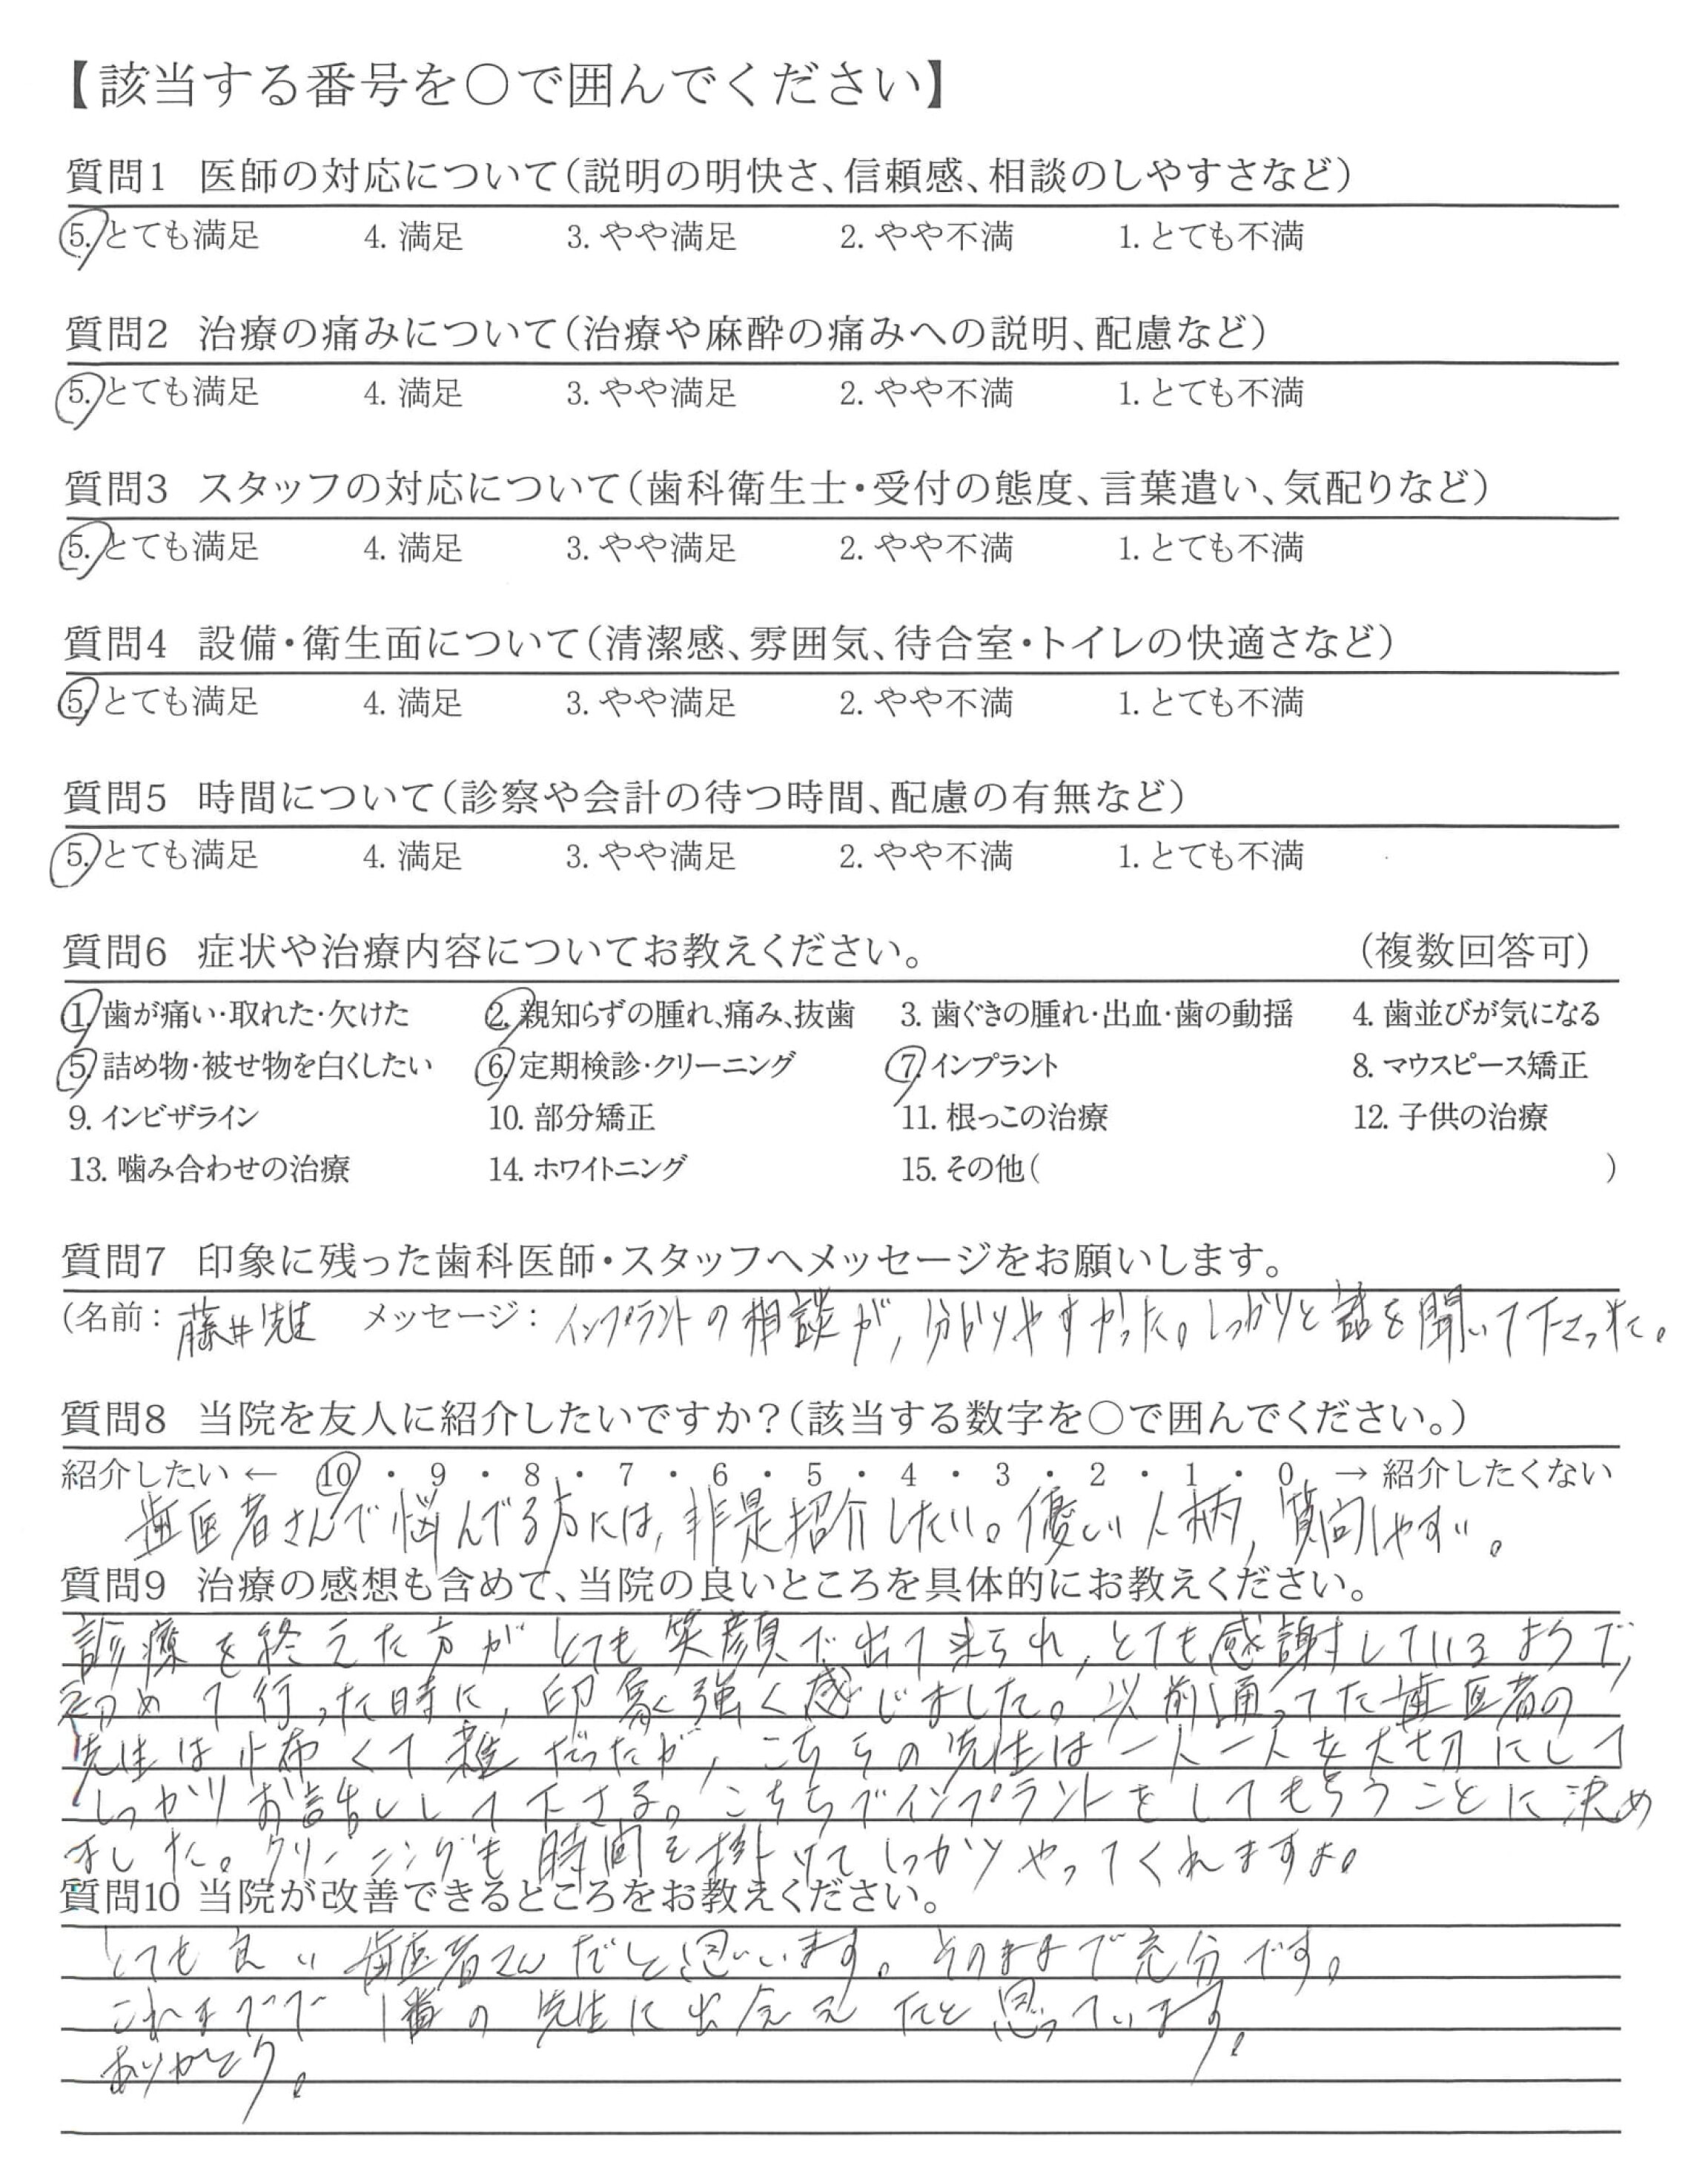 【該当する番号を〇で囲んでください】
質問1 医師の対応について（説明の明快さ、信頼感、相談のしやすさなど）
5. とても満足 4. 満足 3. やや満足 2. やや不満 1. とても不満
質問2 治療の痛みについて（治療や麻酔の痛みへの説明、配慮など）
5. とても満足 4. 満足 3. やや満足 2. やや不満 1. とても不満
質問3 スタッフの対応について（歯科衛生士・受付の態度、言葉遣い、気配りなど）
5. とても満足 4. 満足 3. やや満足 2. やや不満 1. とても不満
質問4 設備・衛生面について（清潔感、雰囲気、待合室・トイレの快適さなど）
5. とても満足 4. 満足 3. やや満足 2. やや不満 1. とても不満
質問5 時間について（診察や会計の待つ時間、配慮の有無など）
5. とても満足 4. 満足 3. やや満足 2. やや不満 1. とても不満
質問6 症状や治療内容についてお教えください。 （複数回答可）
1. 歯が痛い・取れた・欠けた 2. 親知らずの腫れ、痛み、抜歯 3. 歯ぐきの腫れ・出血・歯の動揺 4. 歯並びが気になる
5. 詰め物・被せ物を白くしたい 6. 定期検診・クリーニング 7. インプラント 8. マウスピース矯正
9. インビザライン 10. 部分矯正 11. 根っこの治療 12. 子供の治療
13. 噛み合わせの治療 14. ホワイトニング 15. その他（ ）
質問7 印象に残った歯科医師・スタッフへメッセージをお願いします。
（名前：藤井先生 メッセージ：インプラントの相談が、分かりやすかった。しっかりと話を聞いて下さった。
質問8 当院を友人に紹介したいですか？（該当する数字を〇で囲んでください。）
紹介したい ← 10 ・ 9 ・ 8 ・ 7 ・ 6 ・ 5 ・ 4 ・ 3 ・ 2 ・ 1 ・ 0 → 紹介したくない
歯医者さんで悩んでる方には、是非紹介したい。優しい人柄、質問しやすい。
質問9 治療の感想も含めて、当院の良いところを具体的にお教えください。
診療を終えた方がとても笑顔で出て来られ、とても感謝しているようで、
初めて行った時に、印象強く感じました。以前通ってた歯医者の
先生は怖くて雑だったが、こちらの先生は一人一人を大切にして
しっかりお話しして下さる。こちらでインプラントをしてもらうことに決め
ました。クリーニングも時間を掛けてしっかりやってくれますよ。
質問10 当院が改善できるところをお教えください。
とても良い歯医者さんだと思います。そのままで充分です。
これまでで1番の先生に出会えたと思っています。
ありがとう。